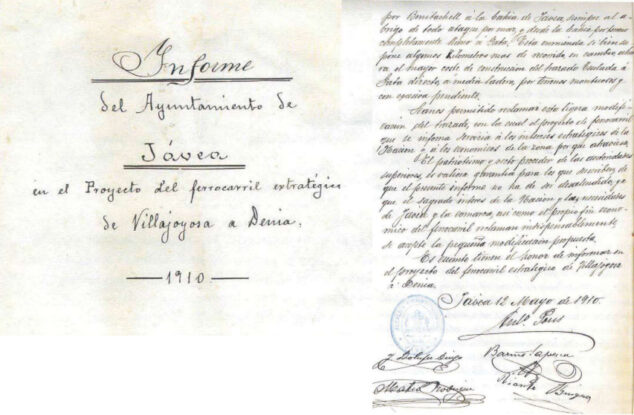 Informe
del Ayuntamiento de
Jávea
en el Proyecto del ferrocarril estratégico
de Villajoyosa a Denia.
1910.
por Benitachell á la bahia de Jávea siempre al a-
brigo de todo ataque por mar, y desde la bahia por terreno
completamente llano á Gata. Esta enmienda si bien su-
pone algunos kilometros mas de recorrido, en cambio,
ra el mayor coste de construccion del trazado Teulada á
Gata directo, á media ladera, por terrenos montuosos y
con excesiva pendiente.
Séanos permitido reclamar esta ligera modifi-
cacion del trazado, con la cual el proyecto de ferrocarril
que se informa serviria á los intereses estratégicos de la
Nacion y á los economicos de la zona por que atraviesa.
El patriotismo y recto proceder de las autoridades
superiores, es valiosa garantia para los que suscriben, de
que el presente informe no ha de ser desatendido, ya
que el sagrado interes de la Nacion y las necesidades
de Jávea y la comarca, asi como el propio fin econó-
mico del ferrocarril reclaman indispensablemente,
se acepte la pequeña modificacion propuesta.
Es cuanto tienen el honor de informar en
el proyecto del ferrocarril estratégico de Villajoyosa
á Denia.
Jávea 12 Mayo de 1910.